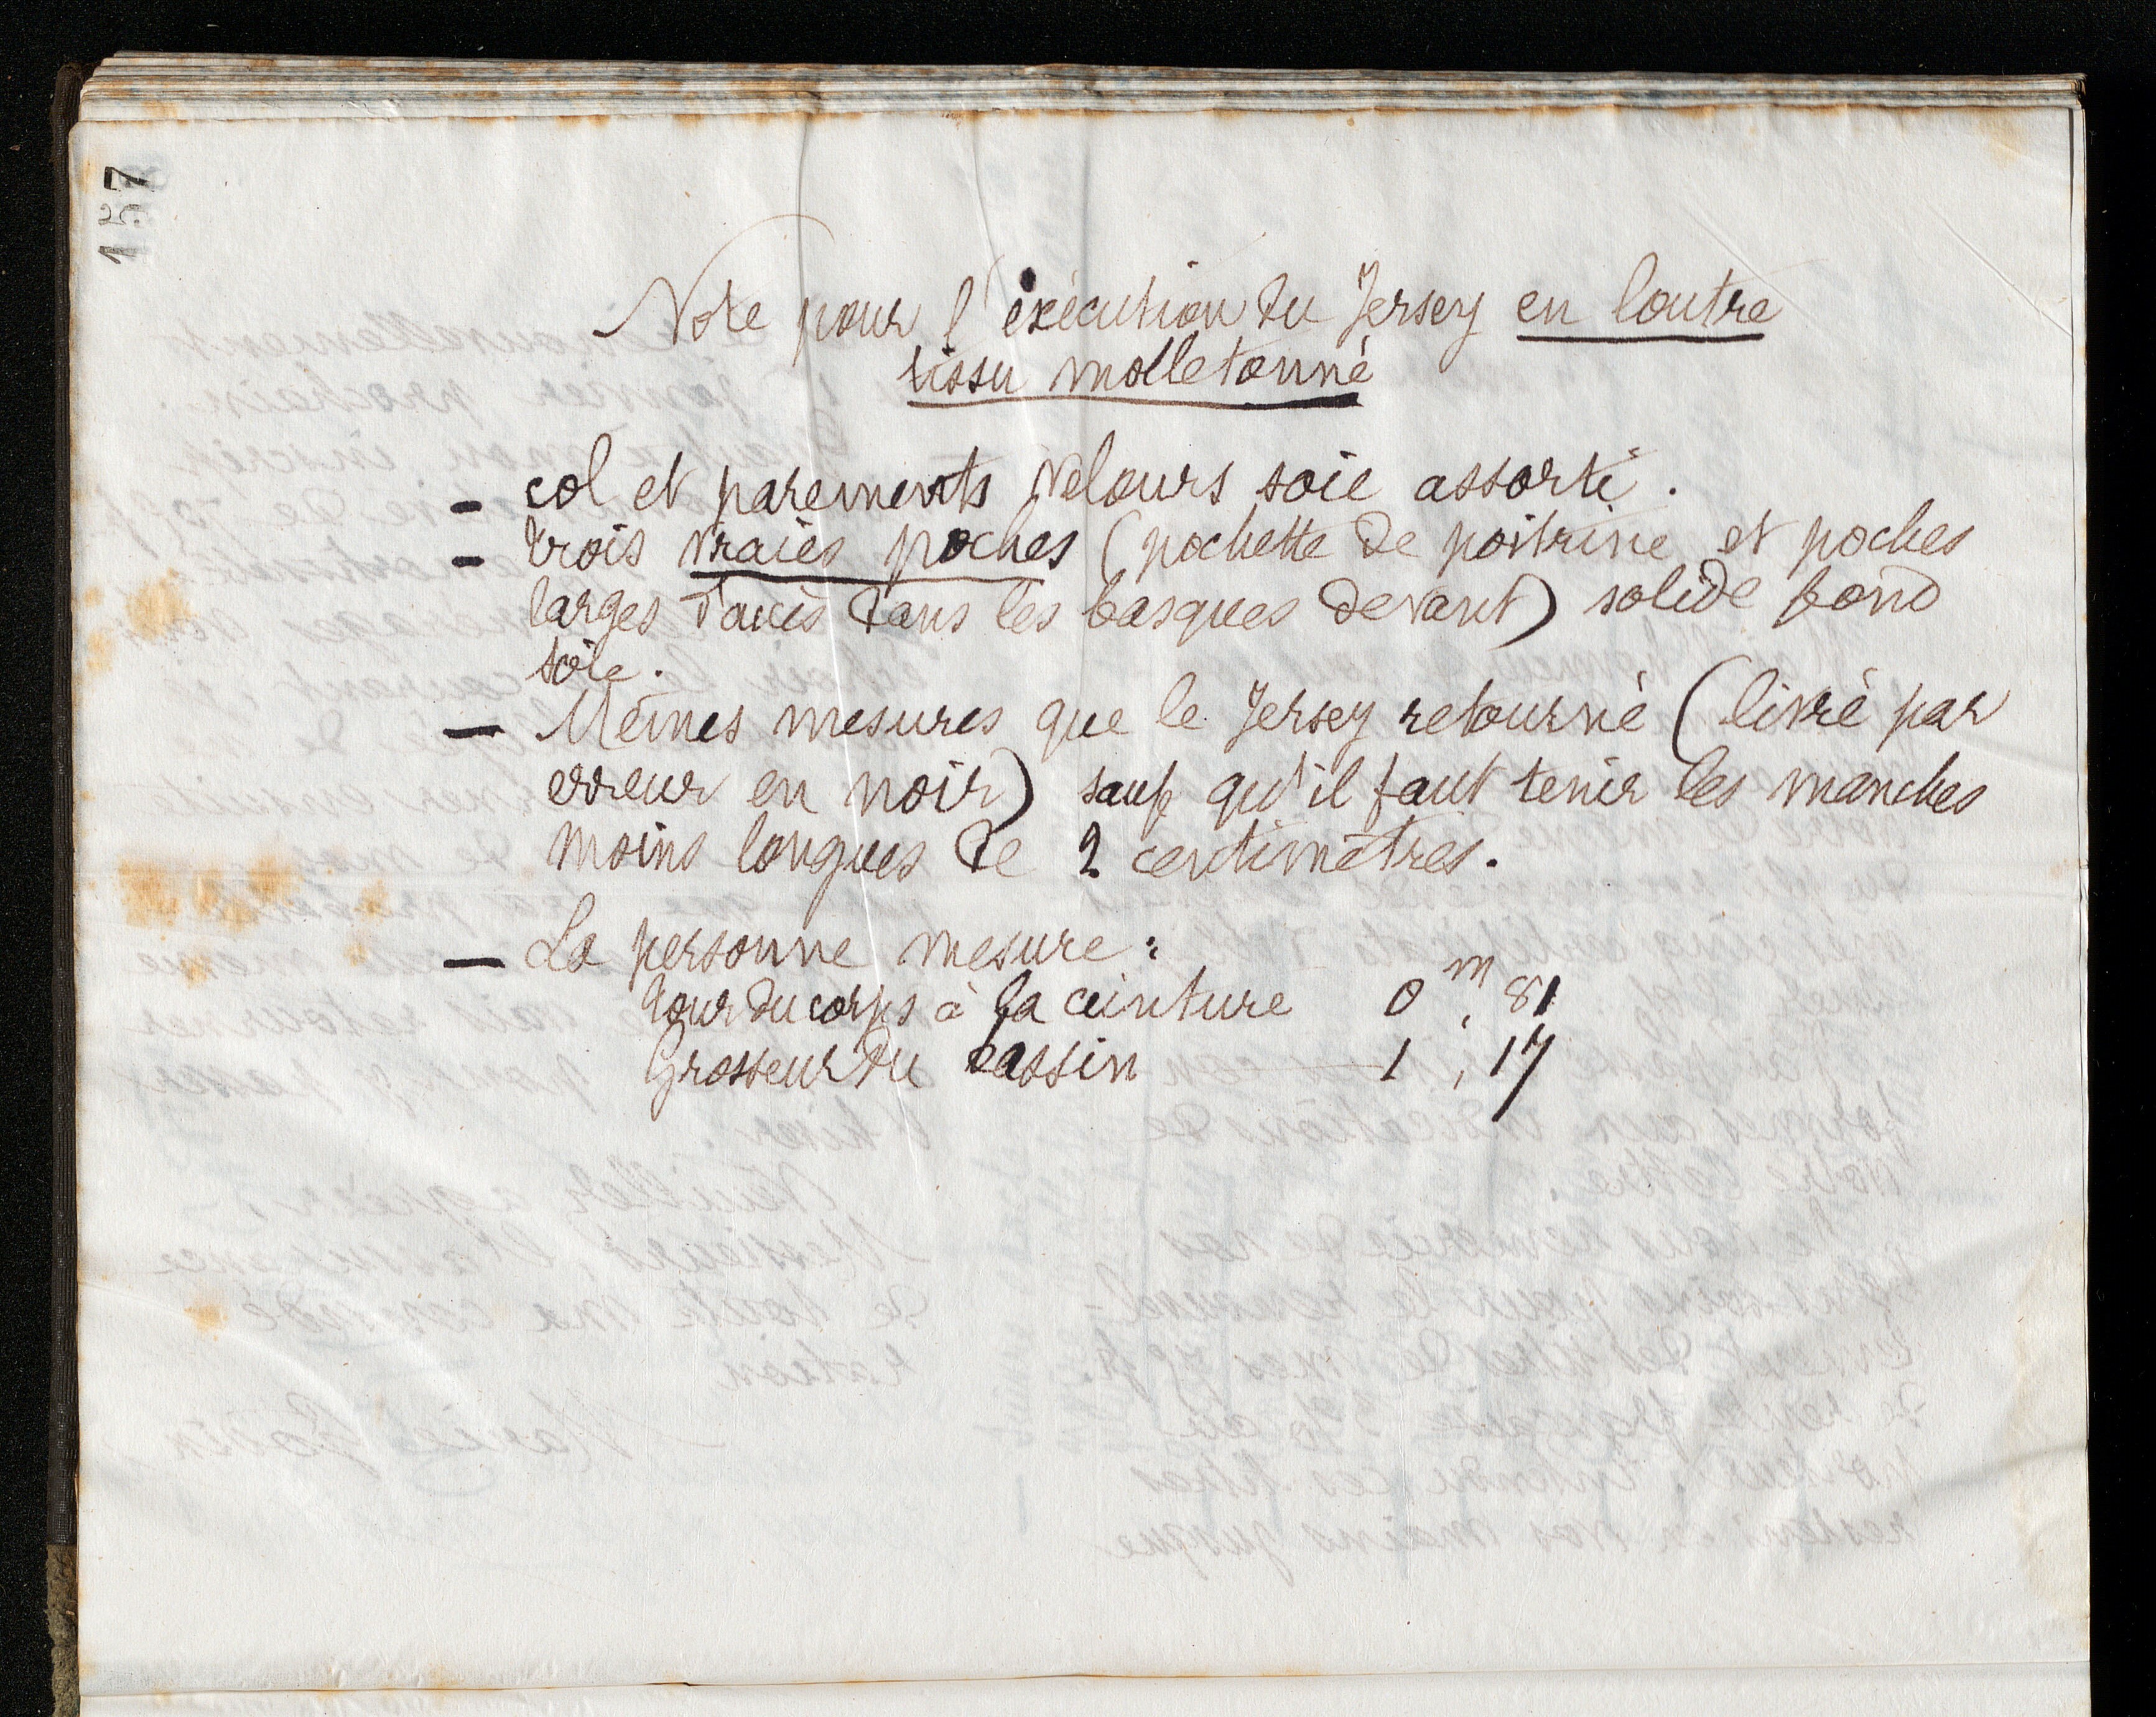 157
Note pour l'exécution du Jersey en loutre
tissu molletonné
- col et parements velours soie assorti.
- trois vraies poches (pochette de poitrine et poches
larges dans les basques devant) solide fond
soie.
- Mêmes mesures que le Jersey retourné (livré par
erreur en noir) sauf qu'il faut tenir les manches
moins longues de 2 centimètres.
- La personne mesure :
tour du corps à la ceinture 0m, 81
Grosseur du bassin 1, 17